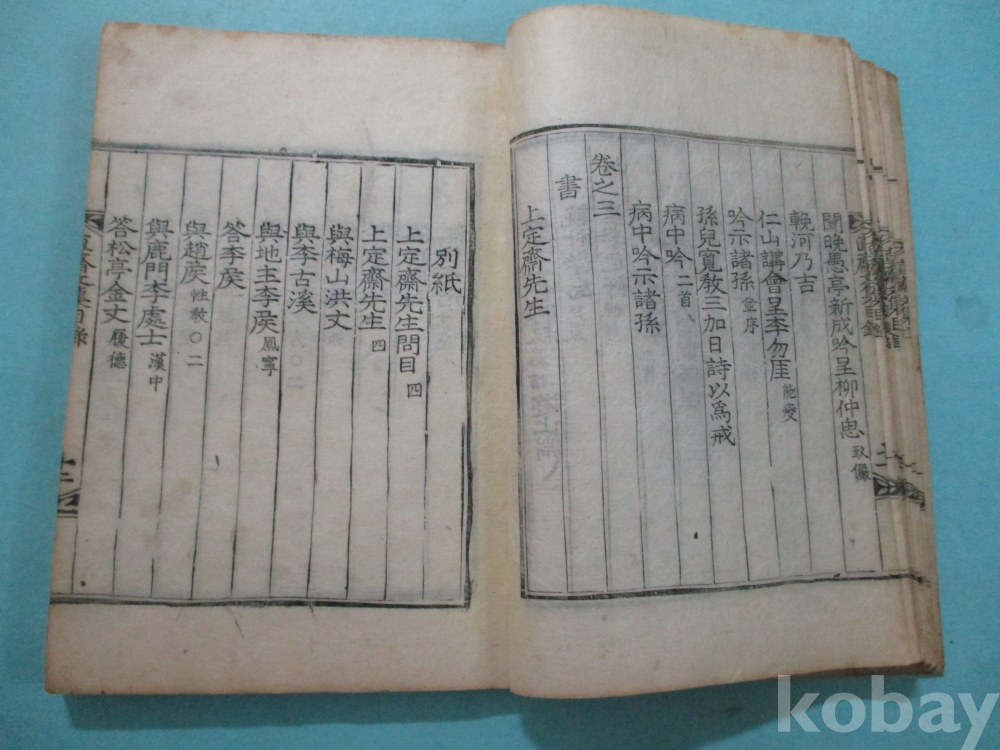 聞晚愚亭新成吟呈柳仲思 致儼
輓河乃吉
仁山講會呈李勿厓 能燮
吟示諸孫 並序
孫兒寬敎三加日詩以爲戒
病中吟 二首
病中吟示諸孫
卷之三
書
上定齋先生
別紙
上定齋先生問目 四
上定齋先生 四
與梅山洪丈
與李古溪
與地主李侯 鳳寧
答李侯
與趙侯 性敎○二
與鹿門李處士 漢中
答松亭金丈 履德
kobay